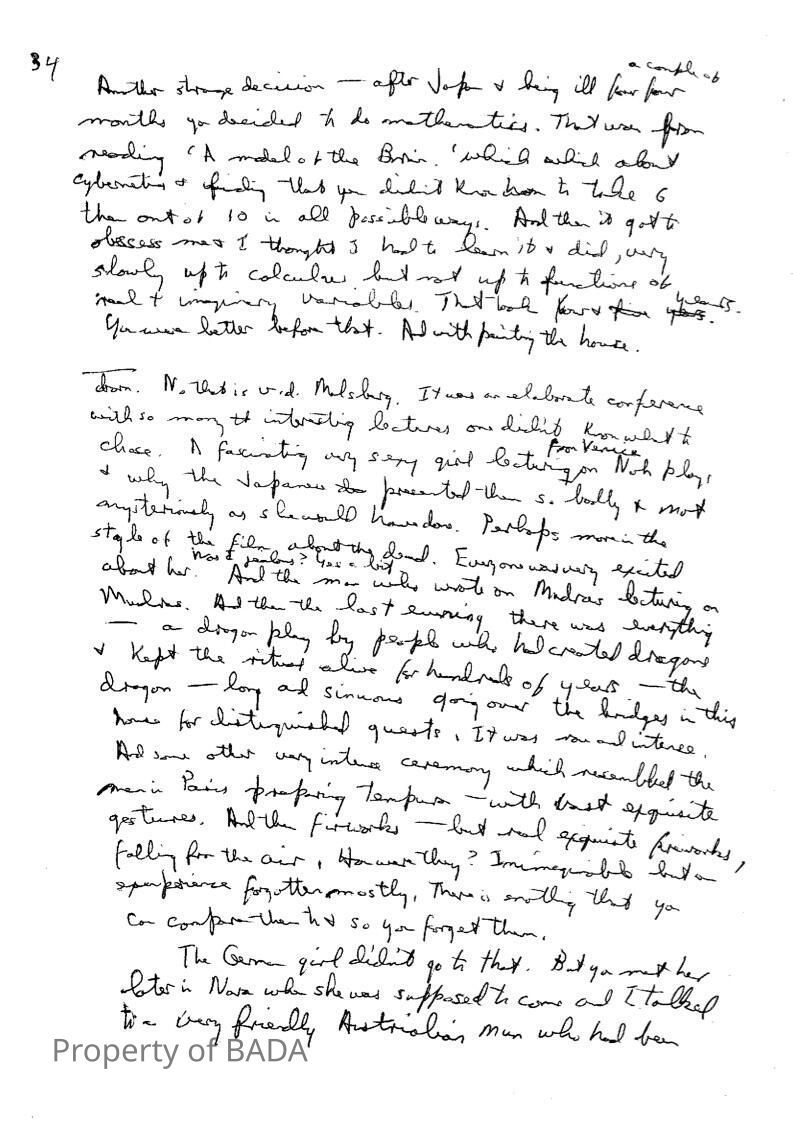 34
a couple of
Another strange decision — after Japan & being ill for four
months you decided to do mathematics. That was from
reading 'A model of the Brain.' which which about
cybernetics & finding that you didn't know how to take 6
than out of 10 in all possible ways. And then it got to
obscess me & I thought I had to learn it & did, very
slowly up to calculus but not up to functions of
real & imaginary variables. That took four & five years.
years.
You were better before that. And with painting the house.
down. No that is v.d. Malsburg. It was an elaborate conference
with so many interesting lectures one didn't know what to
from Venice
chose. A fascinating very sexy girl lecturing on Noh plays
& why the Japanese presented them so badly & not
mysteriously as she would have done. Perhaps more in the
style of the film about the dead. Everyone was very excited
Was I jealous? Yes a bit.
about her. And the man who wrote on Mudras lecturing on
Mudras. And then the last evening there was everything
— a dragon play by people who had created dragons
& kept the ritual alive for hundreds of years — the
dragon — long and sinuous going over the bridges in this
house for distinguished guests. It was and intense.
And some other very intense ceremony which resembled the
man in Paris preparing Tempura — with most exquisite
gestures. And then fireworks — but real exquisite fireworks,
falling from the air, How were they? but an
experience forgotten mostly. There is nothing that you
can compare them to & so you forget them.
The German girl didn't go to that. But you met her
later in Nara when she was supposed to come and I talked
to a very friendly Australian man who had been
Property of BADA